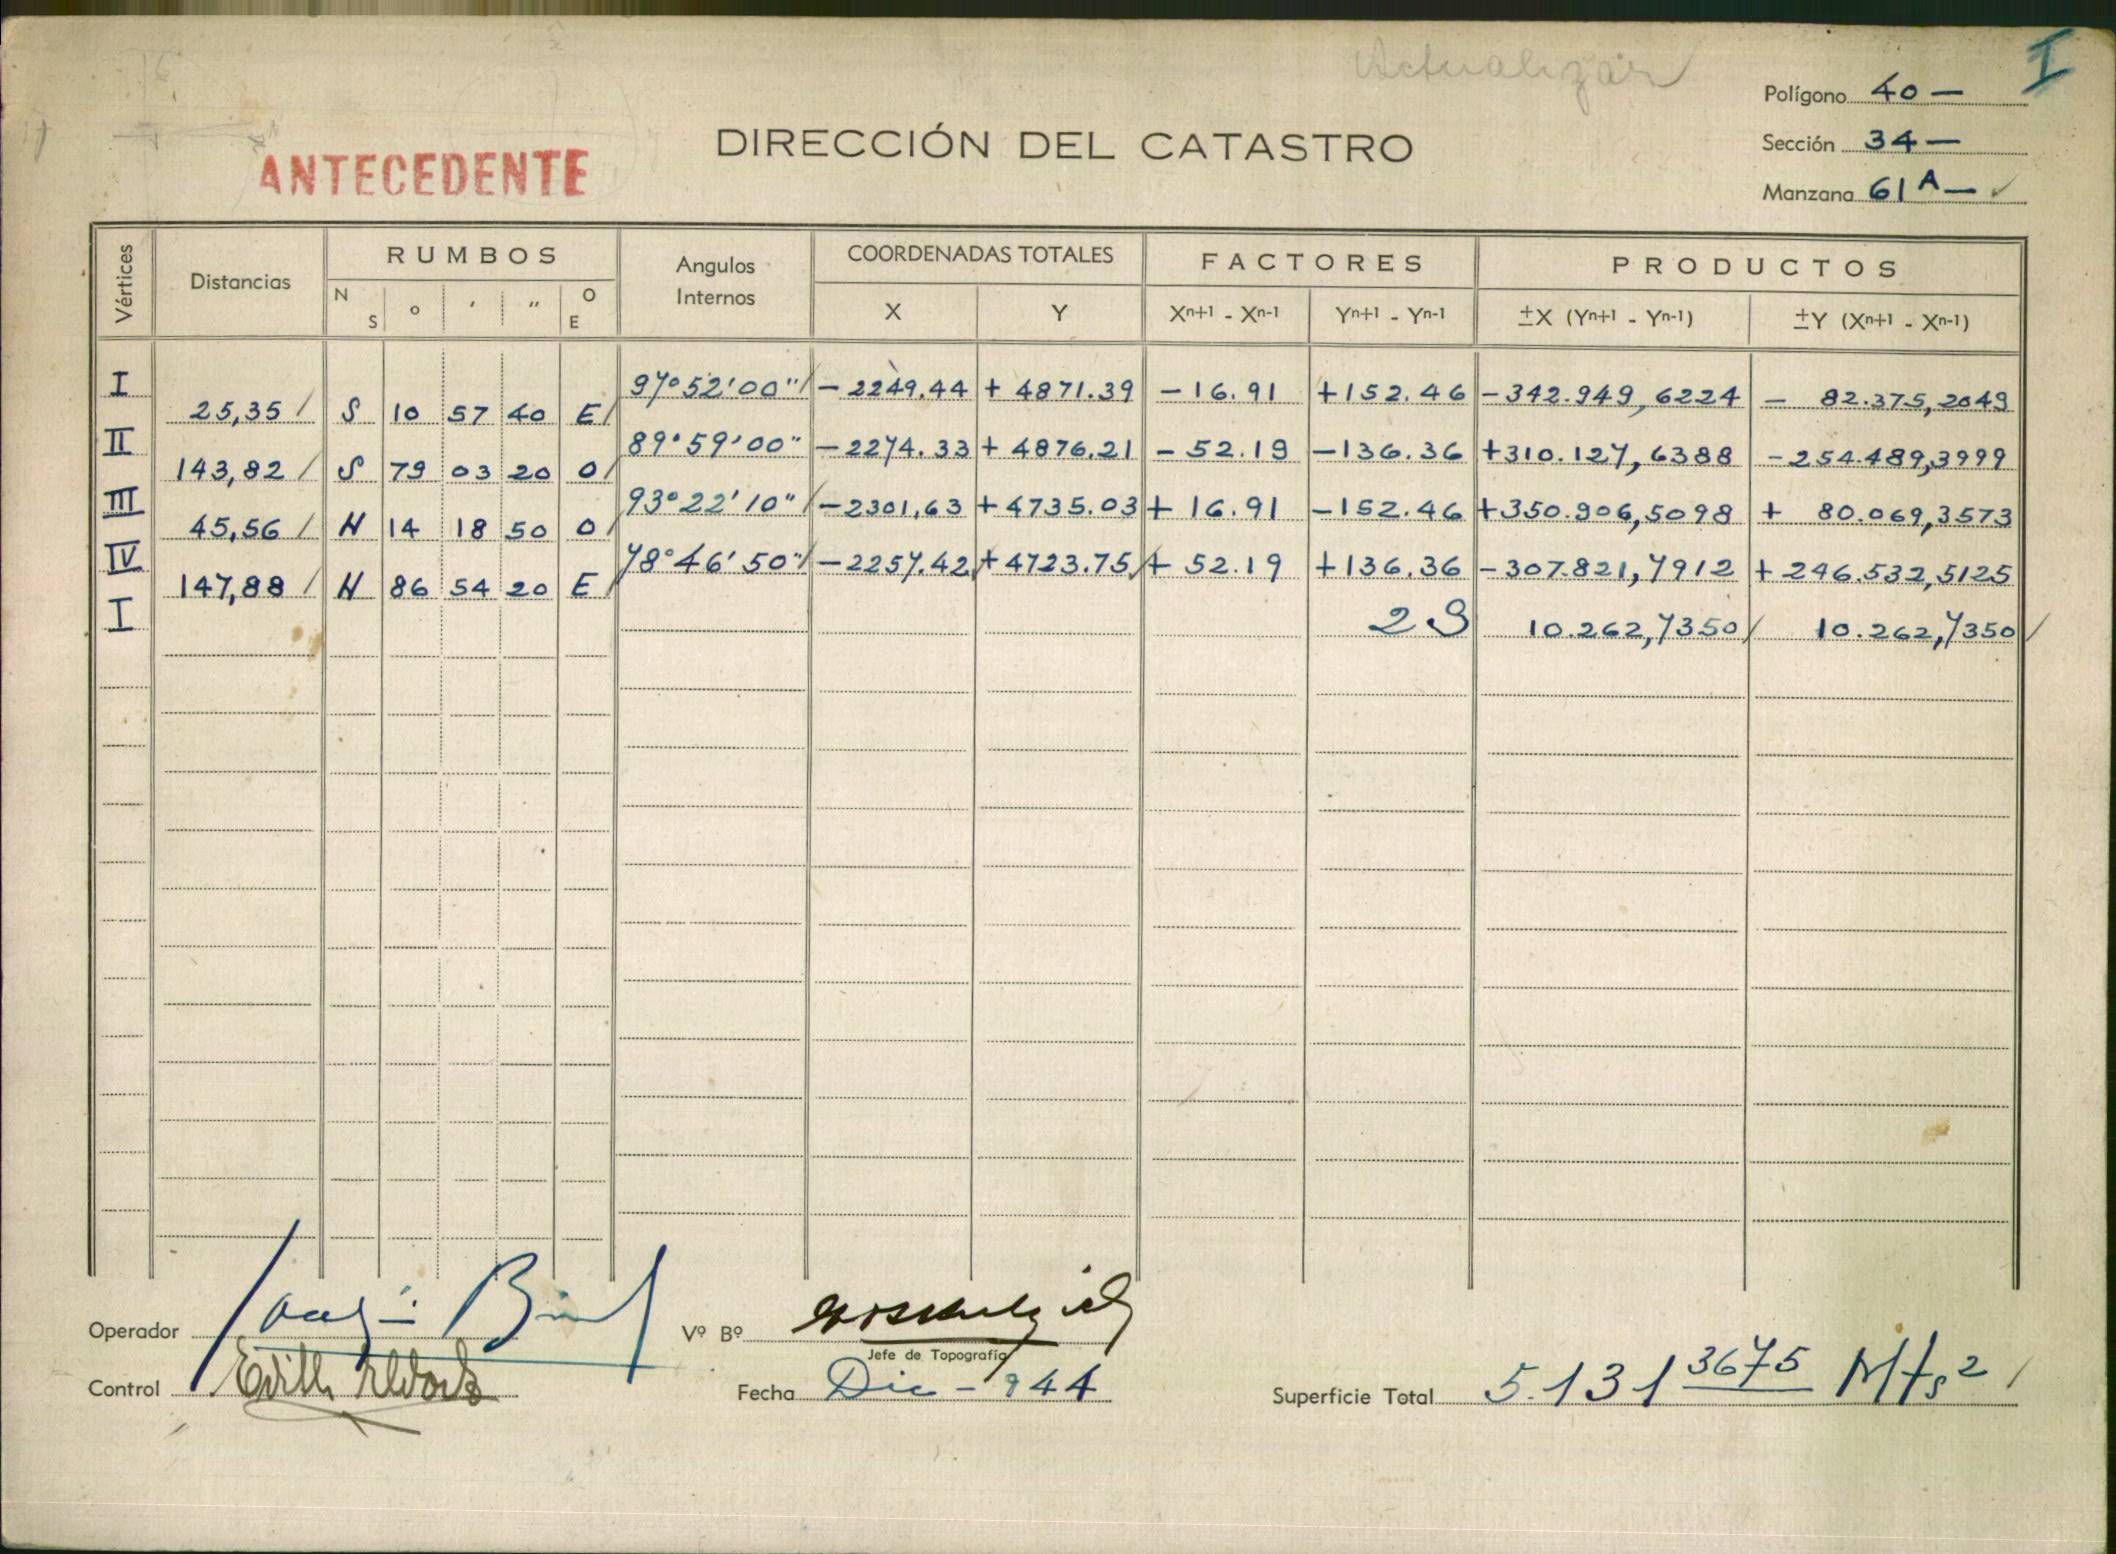 Actualizar
I
Polígono 40 —
DIRECCIÓN DEL CATASTRO
Sección 34 —
ANTECEDENTE
Manzana 61 A —
Vértices Distancias RUMBOS Angulos Internos COORDENADAS TOTALES FACTORES PRODUCTOS
N S ° ′ ″ O E X Y Xn+1 - Xn-1 Yn+1 - Yn-1 ±X (Yn+1 - Yn-1) ±Y (Xn+1 - Xn-1)
I 97°52'00" −2249.44 +4871.39 −16.91 +152.46 −342.949,6224 − 82.375,2049
25,35 S 10 57 40 E
II 89°59'00" −2274.33 +4876.21 −52.19 −136.36 +310.127,6388 −254.489,3999
143,82 S 79 03 20 O
III 93°22'10" −2301,63 +4735.03 +16.91 −152.46 +350.906,5098 + 80.069,3573
45,56 N 14 18 50 O
IV 78°46'50" −2257.42 +4723.75 +52.19 +136.36 −307.821,7912 +246.532,5125
147,88 N 86 54 20 E
I 2S 10.262,7350 10.262,7350
Operador
Vº Bº
Jefe de Topografía
Control Edith
Fecha Dic - 944
Superficie Total 5.131 3675 Mts²